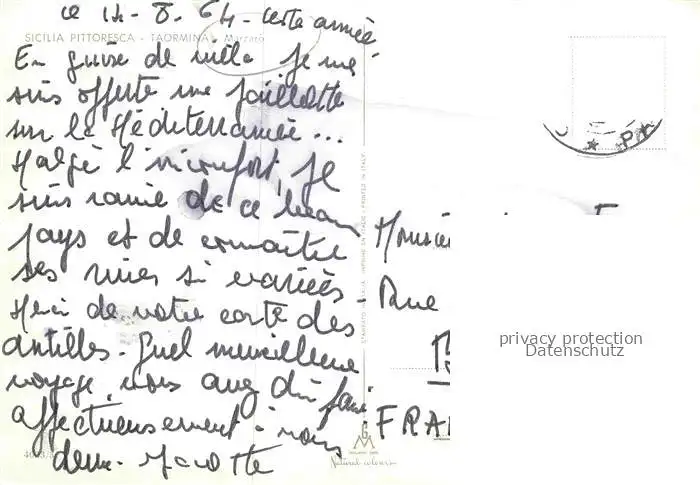 ce 14-8-64-cette année
SICILIA PITTORESCA - TAORMINA - Mercato
En guise de villa je me
suis offerte une paillotte
sur la Méditerranée...
Malgé l'inconfort, je
suis ravie de ce beau
pays et de connaître
ses rives si variées -
Merci de votre carte des
antilles. Quel merveilleux
voyage vous avez dû faire
affectueusement à vous
deux.
Monsieur
Rue
FRA
PRINTED IN ITALY
Natural colours
privacy protection
Datenschutz